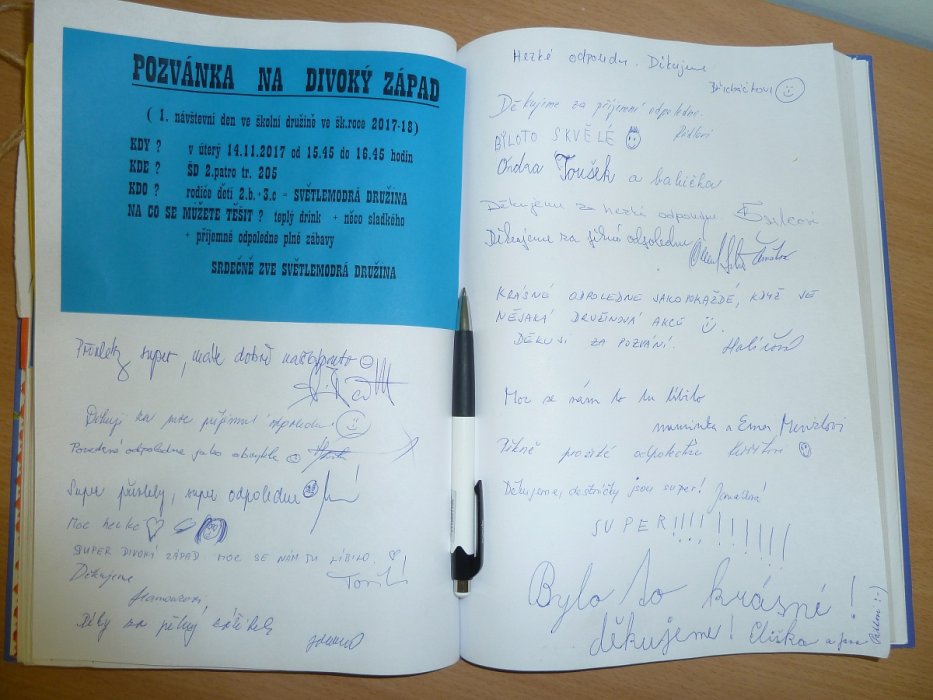 POZVÁNKA NA DIVOKÝ ZÁPAD
( 1. návštevní den ve školní družině ve šk.roce 2017-18)
KDY ? v úterý 14.11.2017 od 15.45 do 16.45 hodin
KDE ? ŠD 2.patro tr. 205
KDO ? rodiče dětí 2.b.+3.c - SVĚTLEMODRÁ DRUŽINA
NA CO SE MŮŽETE TĚŠIT ? teplý drink + něco sladkého
+ příjemné odpoledne plné zábavy
SRDEČNĚ ZVE SVĚTLEMODRÁ DRUŽINA
super, máte dobře
Děkuji za moc příjemné odpoledne!
odpoledne jako obvykle
Super přístřelky, super odpoledne
Moc hezké
SUPER DIVOKÝ ZÁPAD MOC SE NÁM TU LÍBILO.
Děkujeme
Díky za pěkný zážitek
Hezké odpoledne. Děkujeme
Děkujeme za příjemné odpoledne.
BYLOTO SKVĚLÉ
Ondra Toušek a babička
Děkujeme za hezké odpoledne
Děkujeme za odpoledne
KRÁSNÉ ODPOLEDNE JAKO POKAŽDÉ, KDYŽ JE
NĚJAKÁ DRUŽINOVÁ AKCE
DĚKUJI ZA POZVÁNÍ.
Moc se nám to tu líbilo
maminka a Ema
Pěkně prožité odpoledne
Děkujeme, destičky jsou super!
SUPER!!!!!!!!!!
Bylo to krásné!
děkujeme! Eliška a